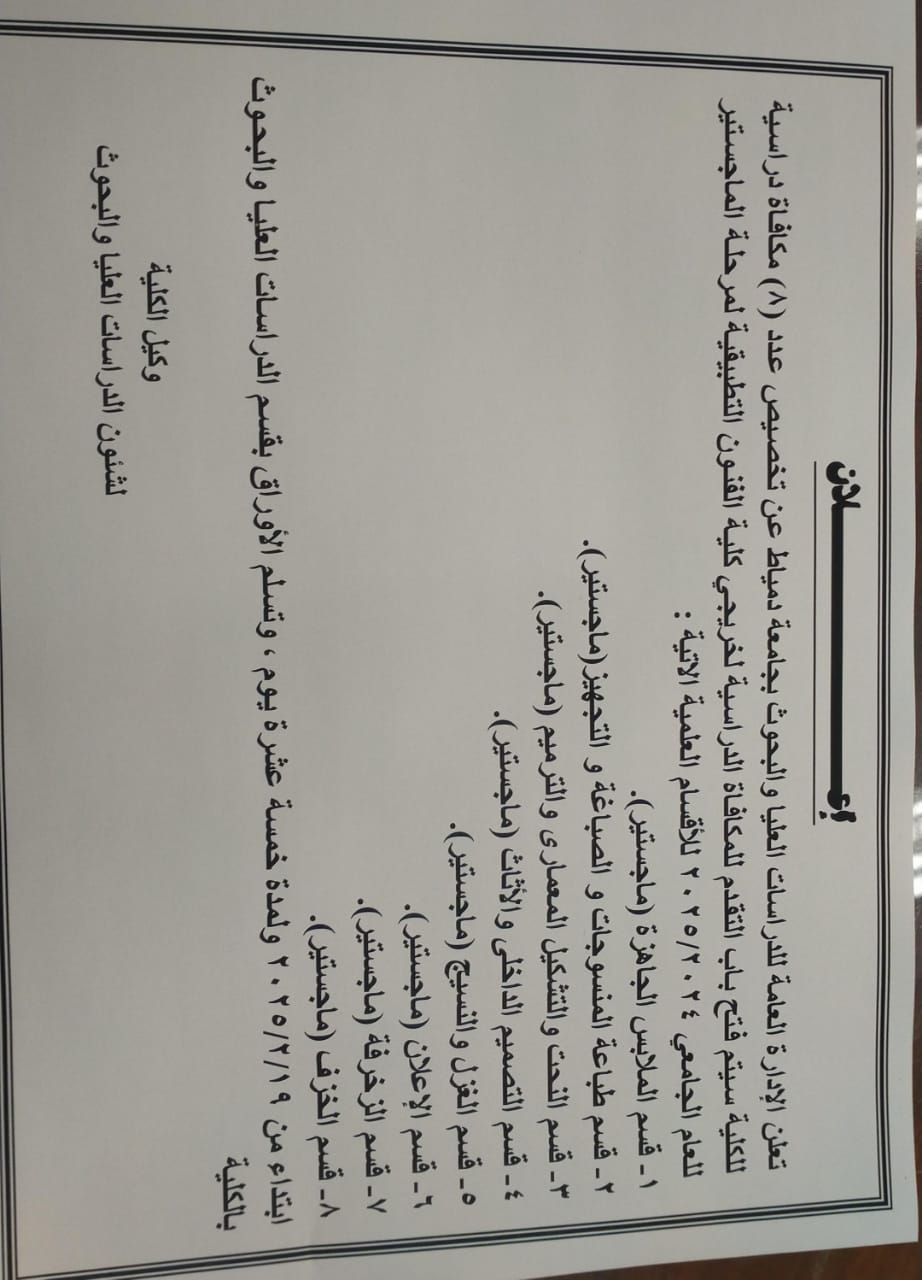 إعـــــــلان
تعلن الإدارة العامة للدراسات العليا والبحوث بجامعة دمياط عن تخصيص عدد (٨) مكافاة دراسية
للكلية سيتم فتح باب التقدم للمكافاة الدراسية لخريجي كلية الفنون التطبيقية لمرحلة الماجستير
للعام الجامعي ٢٠٢٥/٢٠٢٤ للأقسام العلمية الاتية :
١- قسم الملابس الجاهزة (ماجستير).
٢- قسم طباعة المنسوجات و الصباغة و التجهيز(ماجستير).
٣- قسم النحت والتشكيل المعمارى والترميم (ماجستير).
٤- قسم التصميم الداخلى والأثاث (ماجستير).
٥- قسم الغزل والنسيج (ماجستير).
٦- قسم الإعلان (ماجستير).
٧- قسم الزخرفة (ماجستير).
٨- قسم الخزف (ماجستير).
ابتداء من ٢٠٢٥/٢/١٩ ولمدة خمسة عشرة يوم ، وتسلم الأوراق بقسم الدراسات العليا والبحوث
بالكلية
وكيل الكلية
لشئون الدراسات العليا والبحوث